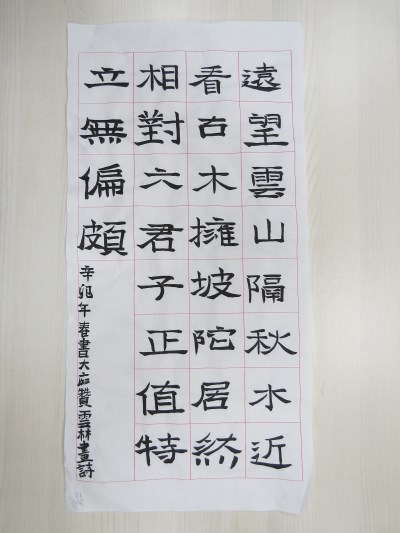 遠望雲山隔秋水近
看古木擁坡陀居然
相對六君子正值特
立無偏頗
辛卯年春書大痴贊雲林畫詩